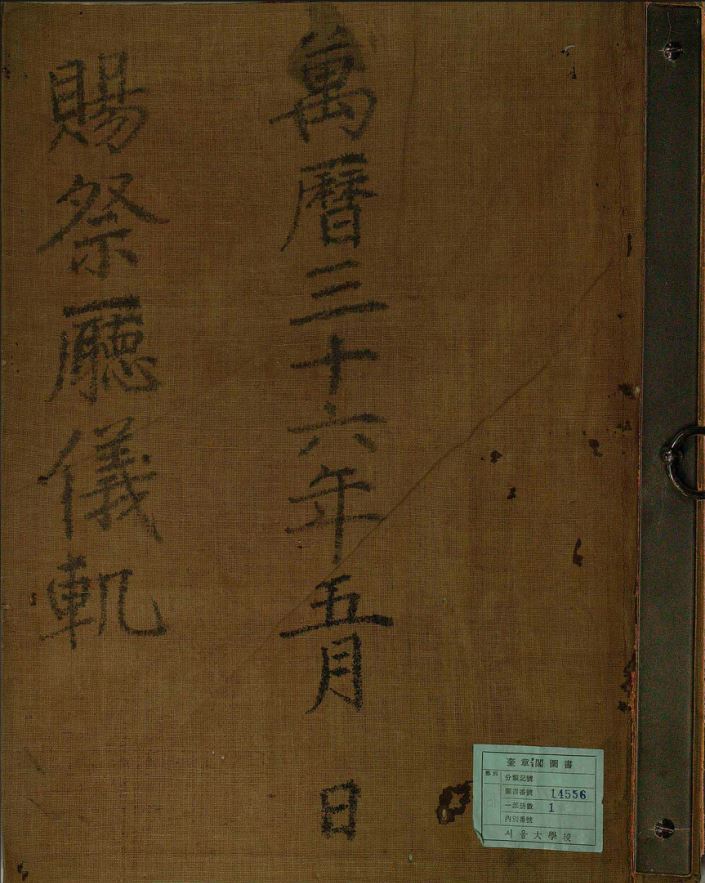 萬曆三十六年五月 日
賜祭廳儀軌
奎章閣圖書
分類記號
圖書番號 14556
一部冊數 1
內別番號
서울大學校